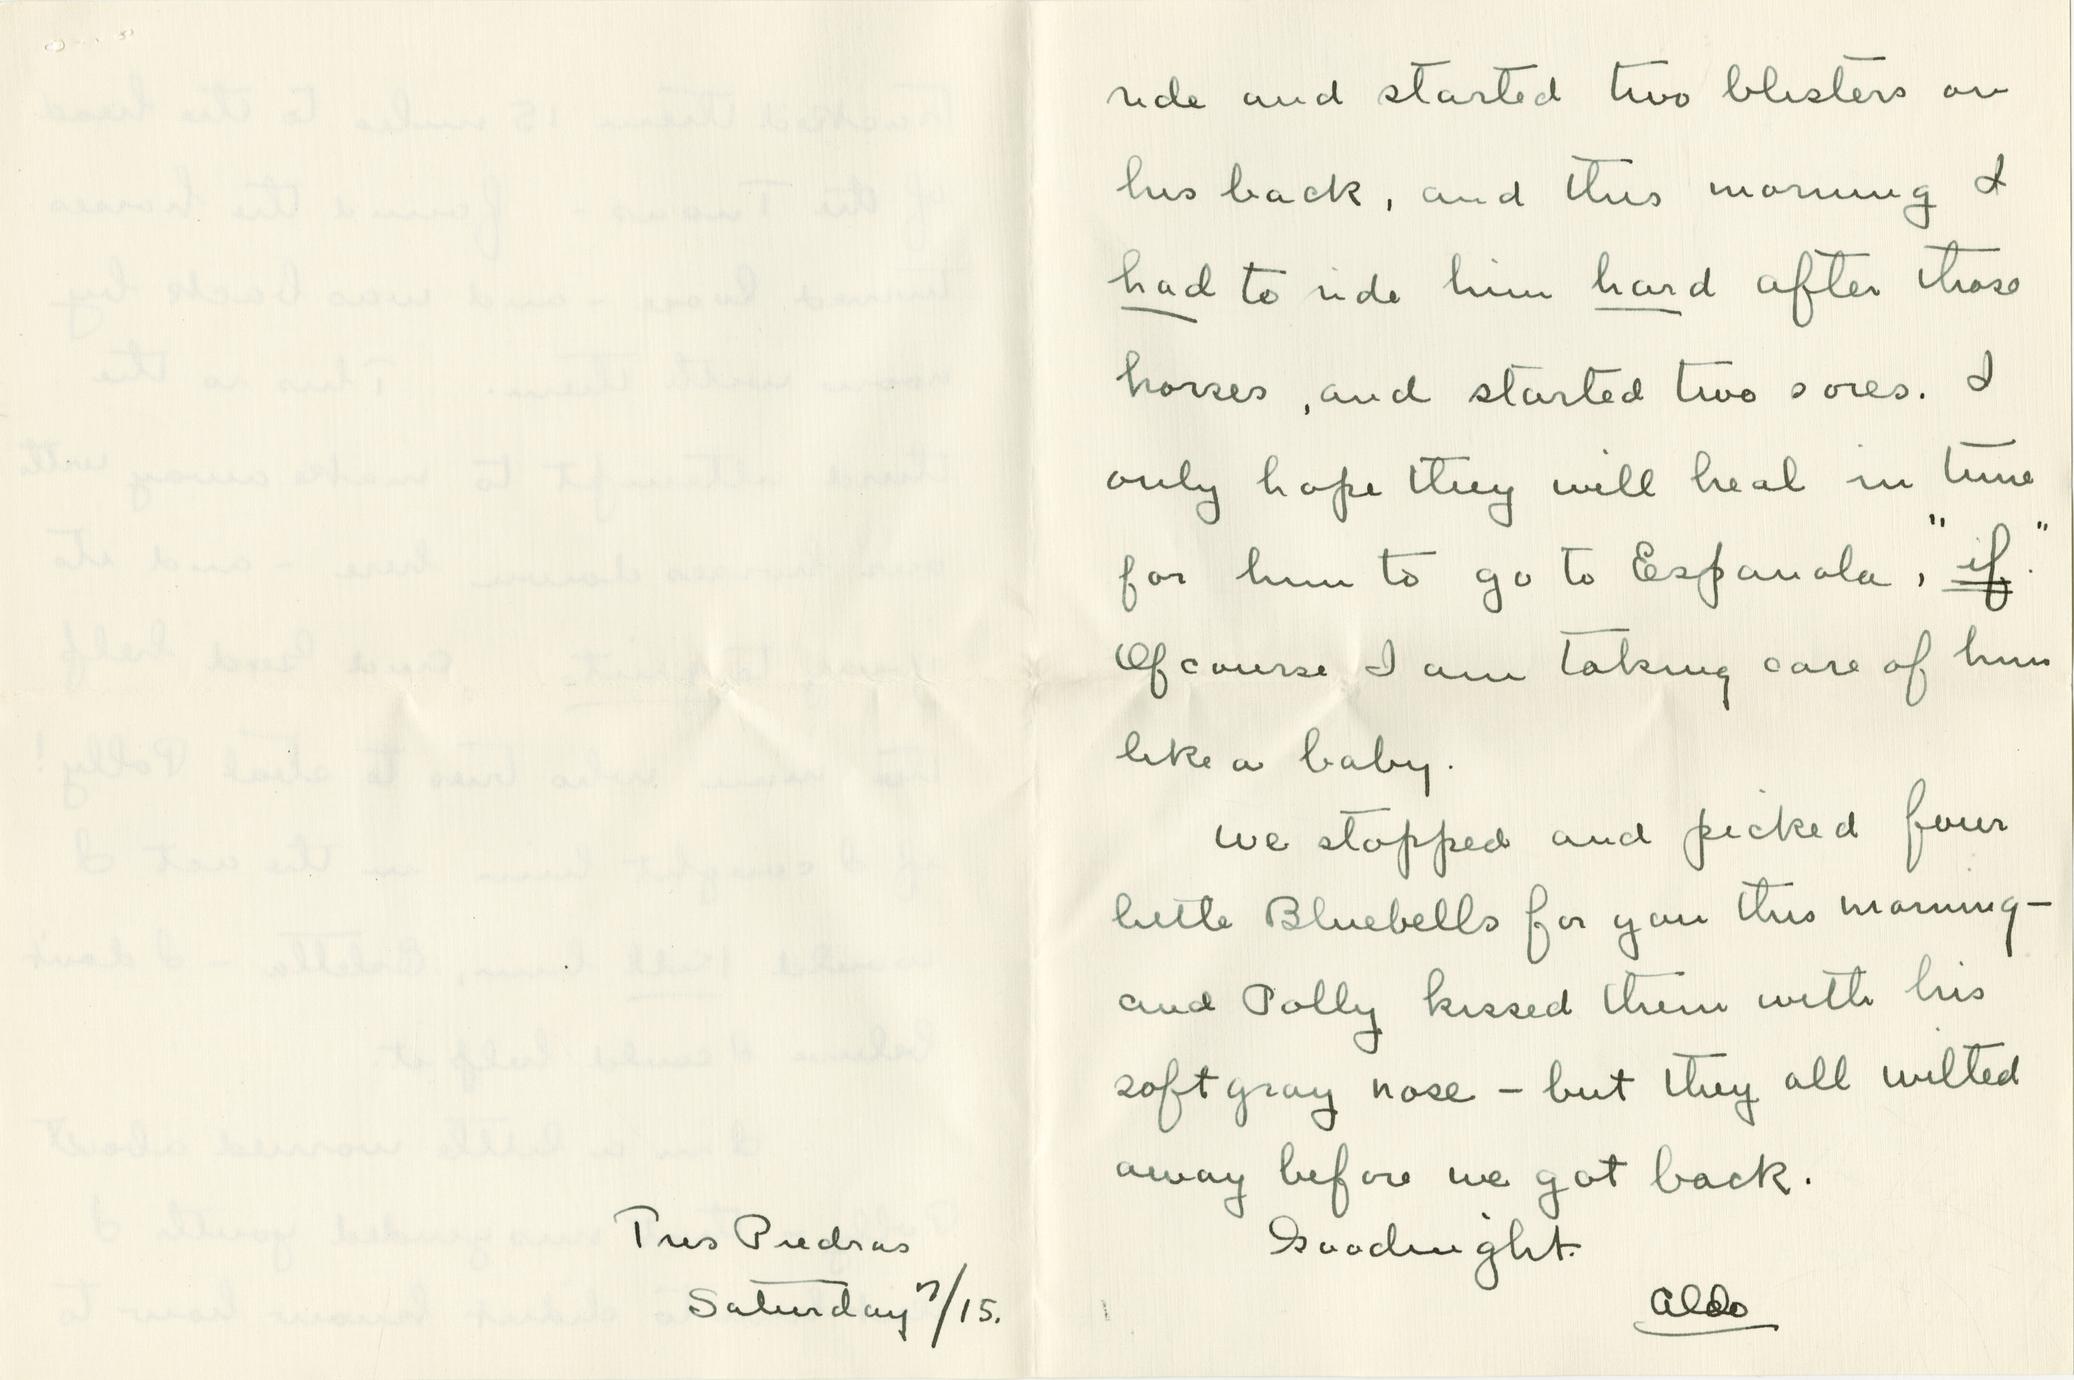 ride and started two blisters on
his back, and this morning I
had to ride him hard after those
horses, and started two sores. I
only hope they will heal in time
for him to go to Espanola, "if."
Of course I am taking care of him
like a baby.
We stopped and picked four
little Bluebells for you this morning—
and Polly kissed them with his
soft gray nose – but they all wilted
away before we got back.
Goodnight.
Aldo
Tres Piedras
Saturday 7/15.